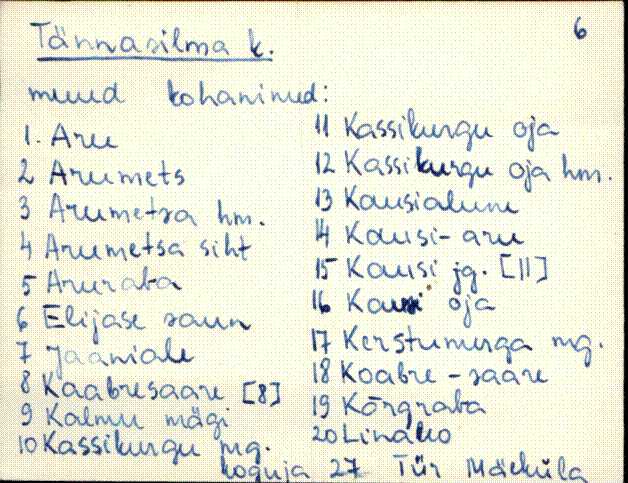 6
Tännasilma k.
muud kohanimed:
1. Aru
2 Arumets
3 Arumetsa hm.
4 Arumetsa siht
5 Aruraba
6 Elijase saun
7 Jaaniale
8 Kaabresaare [8]
9 Kalmu mägi
10 Kassikurgu mg.
11 Kassikurgu oja
12 Kassikurgu oja hm.
13 Kausialune
14 Kausi-aru
15 Kausi jg. [11]
16 Kausi oja
17 Kerstumurga mg.
18 Koabre-saare
19 Kõrgraba
20 Linako
koguja 27 Tür Mäeküla